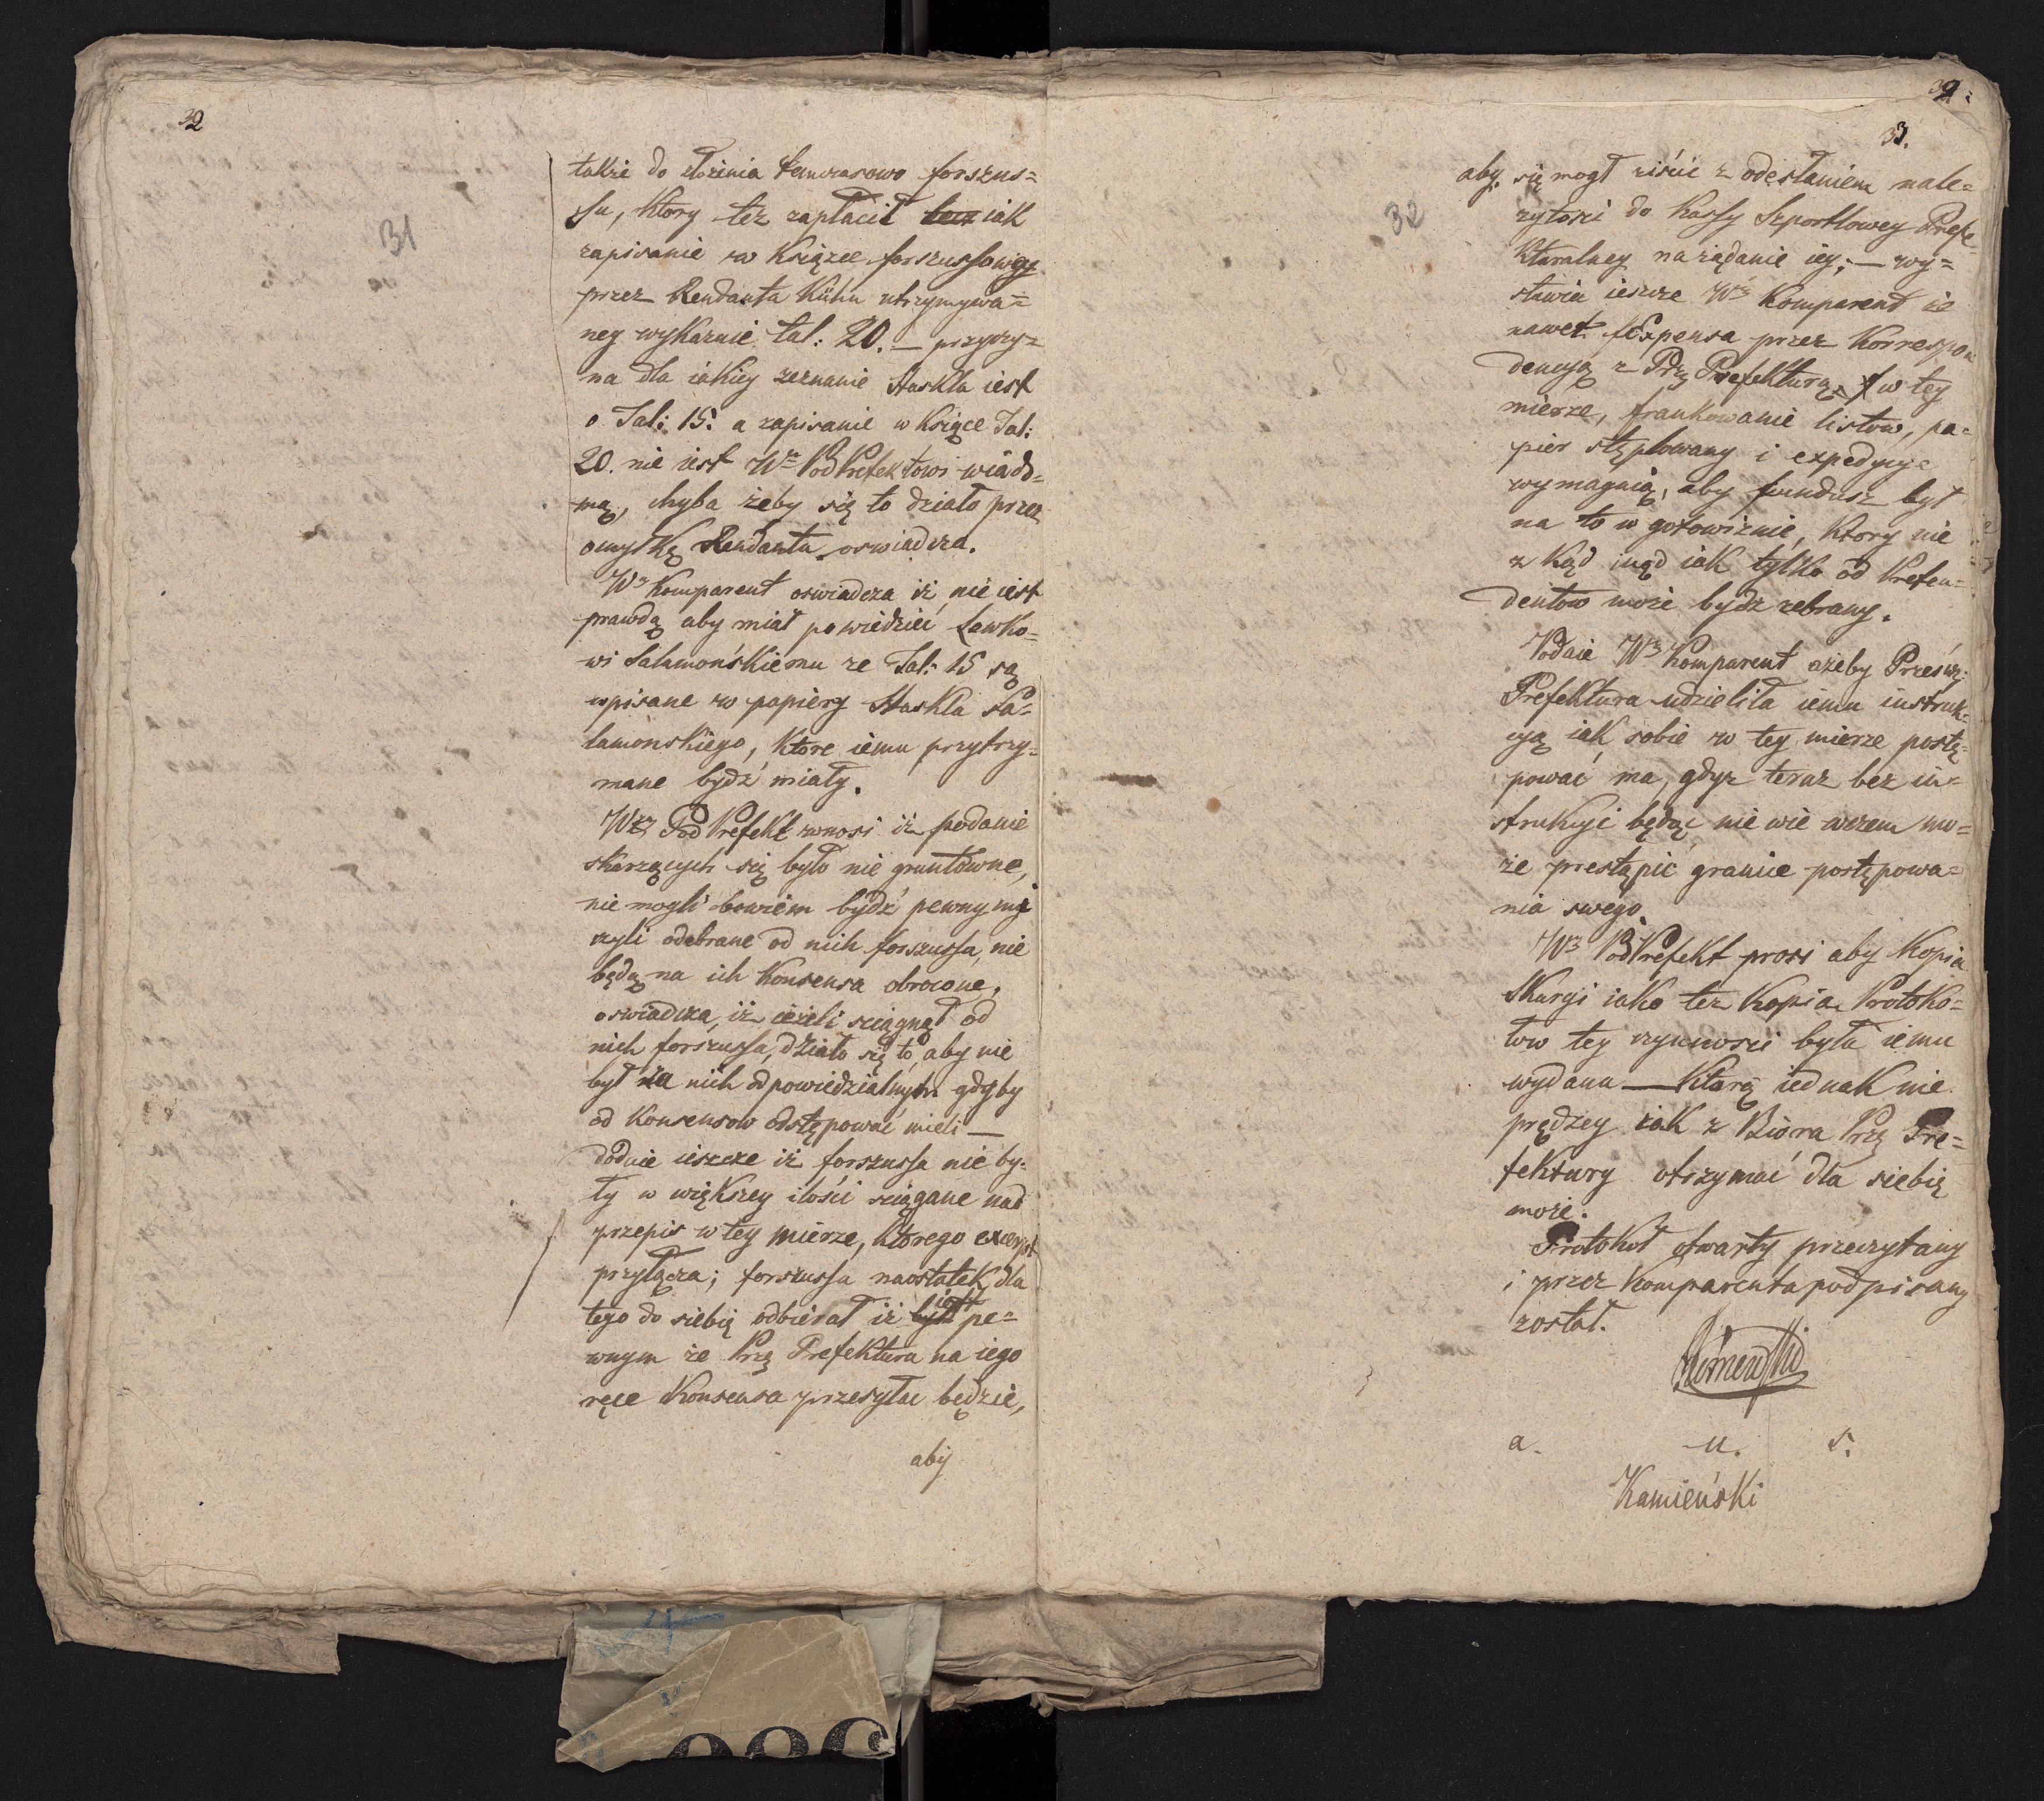 32
31
także do złożenia tymczasowo forszus=
su, ktory tez zapłacił lecz iak
zapisanie w Książce forszussowey
przez Rendanta Kühn utrzymywa=
ney wykazuie tal: 20. — przyczy=
na dla iakiey zeznanie Haskla iest
o Tal: 15. a zapisanie w Ksiące Tal:
20. nie iest Wu PodPrefektowi wiado=
mą, chyba żeby się to działo przez
omyłkę Rendanta oswiadcza.
Wy Komparent oswiadcza iż nie iest
prawdą aby miał powiedzieć Lewko=
wi Salamońskiemu ze Tal: 15 są
wpisane w papiery Haskla Sa=
lamonskiego, ktore iemu przytrzy=
mane bydź miały.
Wy PodPrefekt wnosi iż podanie
skarzących się było nie gruntowne,
nie mogli bowiem bydź pewnymi
czyli odebrane od nich forszussa, nie
będą na ich Konsensa obrocone.
oswiadcza, iż ieżeli sciągnął od
nich forszussa, działo się to, aby nie
był za nich odpowiedzialnym gdyby
od Konsensow odstępować mieli —
dodaie ieszcze iż forszussa nie by=
ły w większey ilości sciągane nad
przepis w tey mierze, ktorego excerpt
przyłącza; forszussa naostatek dla
tego do siebię odbierał iż był iest pe=
wnym że Prze Prefektura na iego
ręce Konsensa przesyłac będzie,
aby
32
33.
32
aby się mogł ziścić z odesłaniem nale=
zytosci do Kassy Szportlowey Prefe=
kturalney na rządanie iey; — wy=
stawia ieszcze Wy Komparent że
nawet Expensa przez Korrespon
dencyą z Prze Prefekturą w tey
mierze, frankowanie listow, pa=
pier stęplowany i expedycye
wymagaią, aby fundusz był
na to w gotowiznie, ktory nie
z kąd inąd iak tylko od Preten=
dentow może bydz zebrany.
Podaie Wy Komparent ażeby Prześw:
Prefektura udzieliła iemu instruk=
cyą iak sobie w tey mierze postę=
pować ma, gdyz teraz bez in=
strukcyi będąc nie wie wczem mo=
że prestąpić granice postępowa=
nia swego.
Wy PodPrefekt prosi aby Kopia
Skargi iako tez Kopia Protoko=
łow tey czynnosci była iemu
wydana — Ktorą iednak nie
prędzey iak z Biora Prze Pre=
fektury otrzymać dla siebię
może.
Protokoł otwarty przeczytany
i przez Komparenta podpisany
został.
a. u. s.
Kamieński